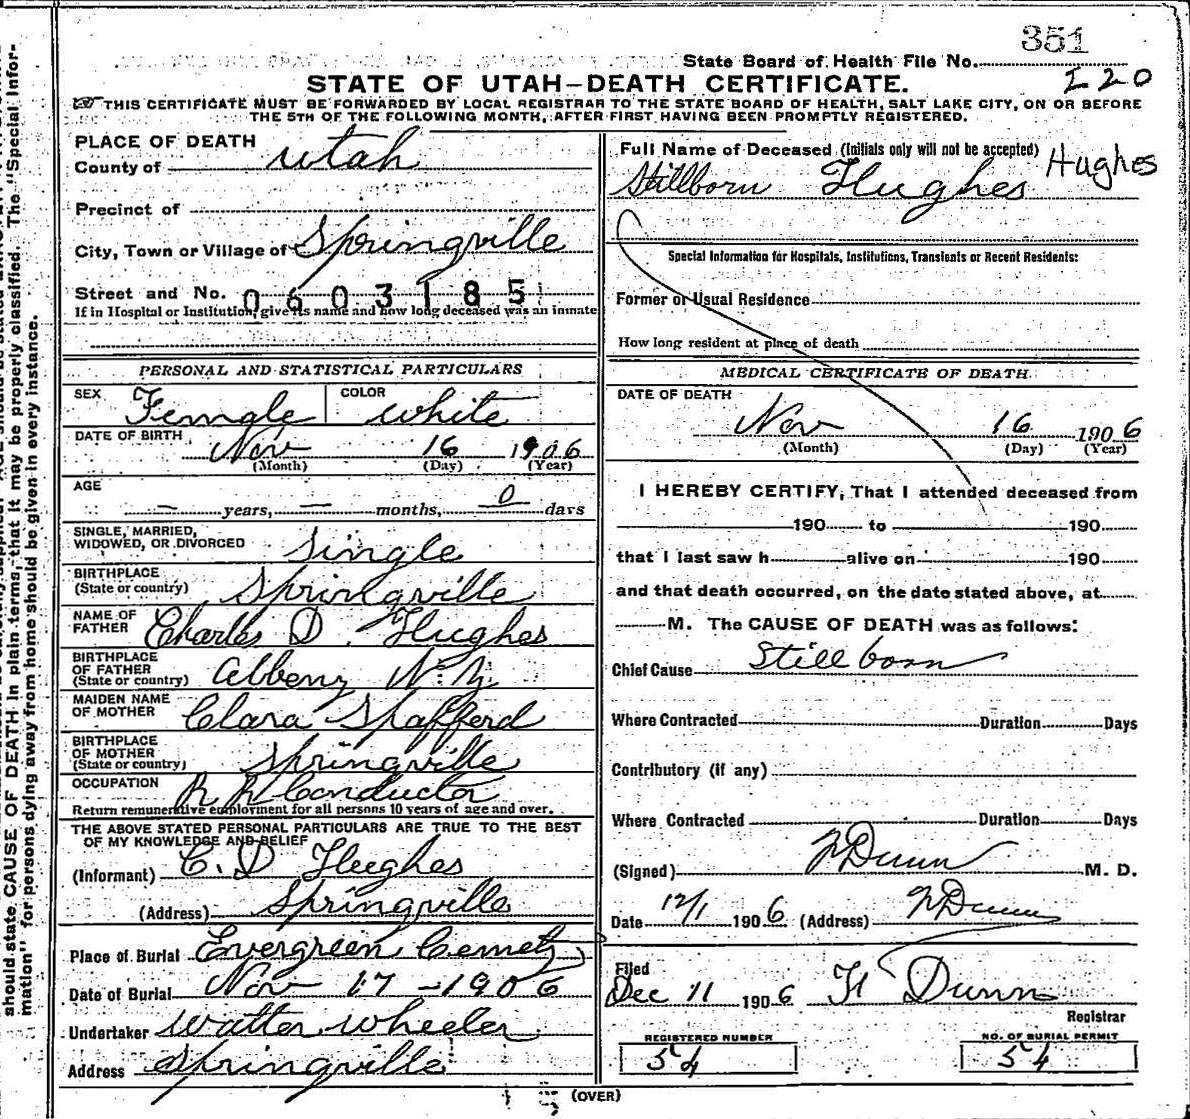 351
State Board of Health File No.
I 20
STATE OF UTAH–DEATH CERTIFICATE.
THIS CERTIFICATE MUST BE FORWARDED BY LOCAL REGISTRAR TO THE STATE BOARD OF HEALTH, SALT LAKE CITY, ON OR BEFORE
THE 5TH OF THE FOLLOWING MONTH, AFTER FIRST HAVING BEEN PROMPTLY REGISTERED.
PLACE OF DEATH
County of Utah
Precinct of
City, Town or Village of Springville
Street and No. 0603185
If in Hospital or Institution, give its name and how long deceased was an inmate
PERSONAL AND STATISTICAL PARTICULARS
SEX Female COLOR white
DATE OF BIRTH Nov 16 1906
(Month) (Day) (Year)
AGE
— years, — months, 0 days
SINGLE, MARRIED,
WIDOWED, OR DIVORCED Single
BIRTHPLACE
(State or country) Springville
NAME OF
FATHER Charles D. Hughes
BIRTHPLACE
OF FATHER
(State or country) Albeny N.Y.
MAIDEN NAME
OF MOTHER Clara Spafferd
BIRTHPLACE
OF MOTHER
(State or country) Springville
OCCUPATION R R Conductor
Return remunerative employment for all persons 10 years of age and over.
THE ABOVE STATED PERSONAL PARTICULARS ARE TRUE TO THE BEST
OF MY KNOWLEDGE AND BELIEF
(Informant) C. D Hughes
(Address) Springville
Place of Burial Evergreen Cemety
Date of Burial Nov 17 - 1906
Undertaker Walter Wheeler
Address Springville
Full Name of Deceased (Initials only will not be accepted) Hughes
Stillborn Hughes
Special Information for Hospitals, Institutions, Transients or Recent Residents:
Former or Usual Residence
How long resident at place of death
MEDICAL CERTIFICATE OF DEATH
DATE OF DEATH
Nov 16 1906
(Month) (Day) (Year)
I HEREBY CERTIFY, That I attended deceased from
190 to 190
that I last saw h alive on 190
and that death occurred, on the date stated above, at
M. The CAUSE OF DEATH was as follows:
Chief Cause Still born
Where Contracted Duration Days
Contributory (if any)
Where Contracted Duration Days
(Signed) Dunn M. D.
Date 12/1 1906 (Address) Dunn
Filed
Dec 11 1906 Dunn
Registrar
REGISTERED NUMBER
54
NO. OF BURIAL PERMIT
54
(OVER)
should state CAUSE OF DEATH in plain terms, that it may be properly classified. The "Special Infor-
mation" for persons dying away from home should be given in every instance.